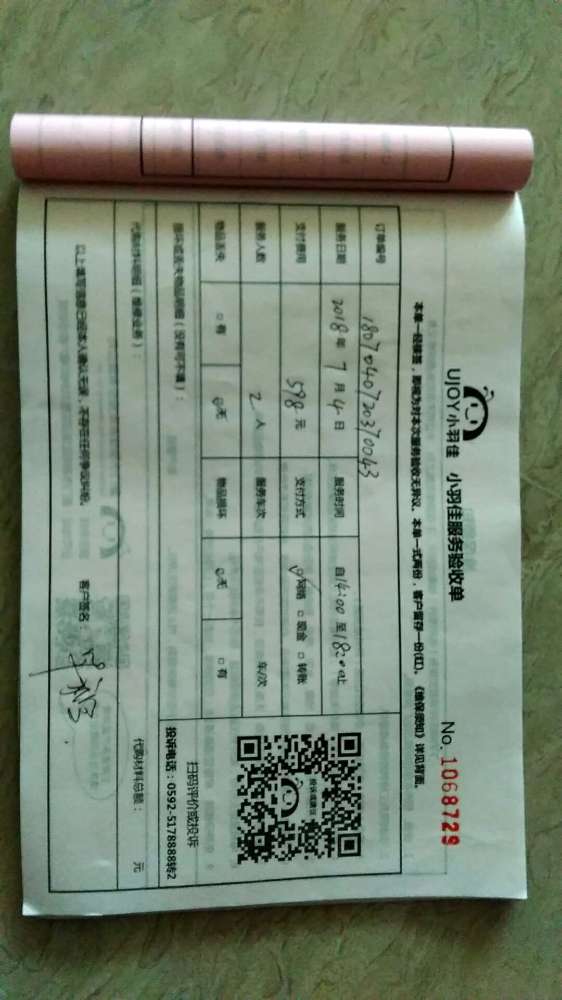 UJOY小羽佳 小羽佳服务验收单 No. 1068729
本单一经接签，即视为对本次服务验收无异议。本单一式两份，客户留存一份(红)。《维保须知》详见背面。
订单编号 1807040720370043
服务日期 2018年7月4日 服务时间 自14:00至18:00止
支付费用 598元 支付方式 ☑网络 □现金 □转账
服务人数 2人 服务车次 车/次
物品丢失 □有 ☑无 物品损坏 ☑无 □有
损坏或丢失物品明细（没有可不填）：
投诉或建议
扫码评价或投诉
投诉电话：0592-5178888转2
代购材料明细（维修业务）： 代购材料总额： 元
以上填写信息已经本人确认无误，不存在任何争议纠纷。 客户签名：